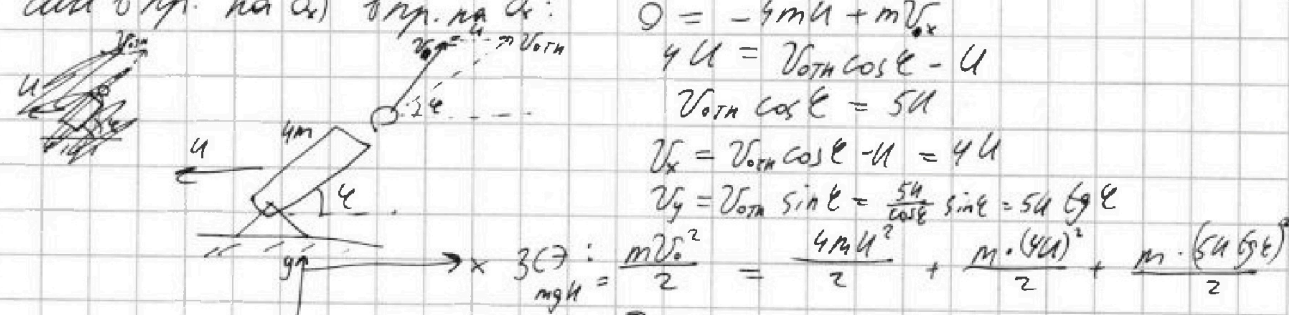 пр. на Ox) в пр. на Ox:
0 = -4mu + mVₓ
4u = Vотн cosφ - u
Vотн cosφ = 5u
Vₓ = Vотн cosφ - u = 4u
Vy = Vотн sinφ = 5u/cosφ sinφ = 5u tgφ
Vотн
u
V₀
u
Vотн
φ
4m
u
φ
y
x
ЗСЭ: mV₀²/2 = 4mu²/2 + m·(4u)²/2 + m·(5u tgφ)²/2
mgH =